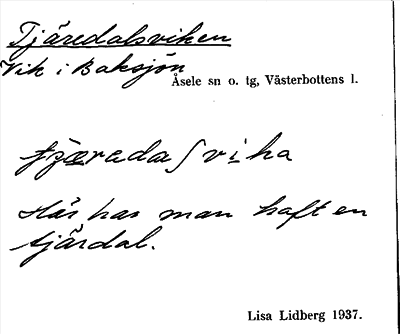 Tjäredalsviken
Vik i Baksjön
Åsele sn o. tg, Västerbottens l.
Här har man haft en
tjärdal.
Lisa Lidberg 1937.